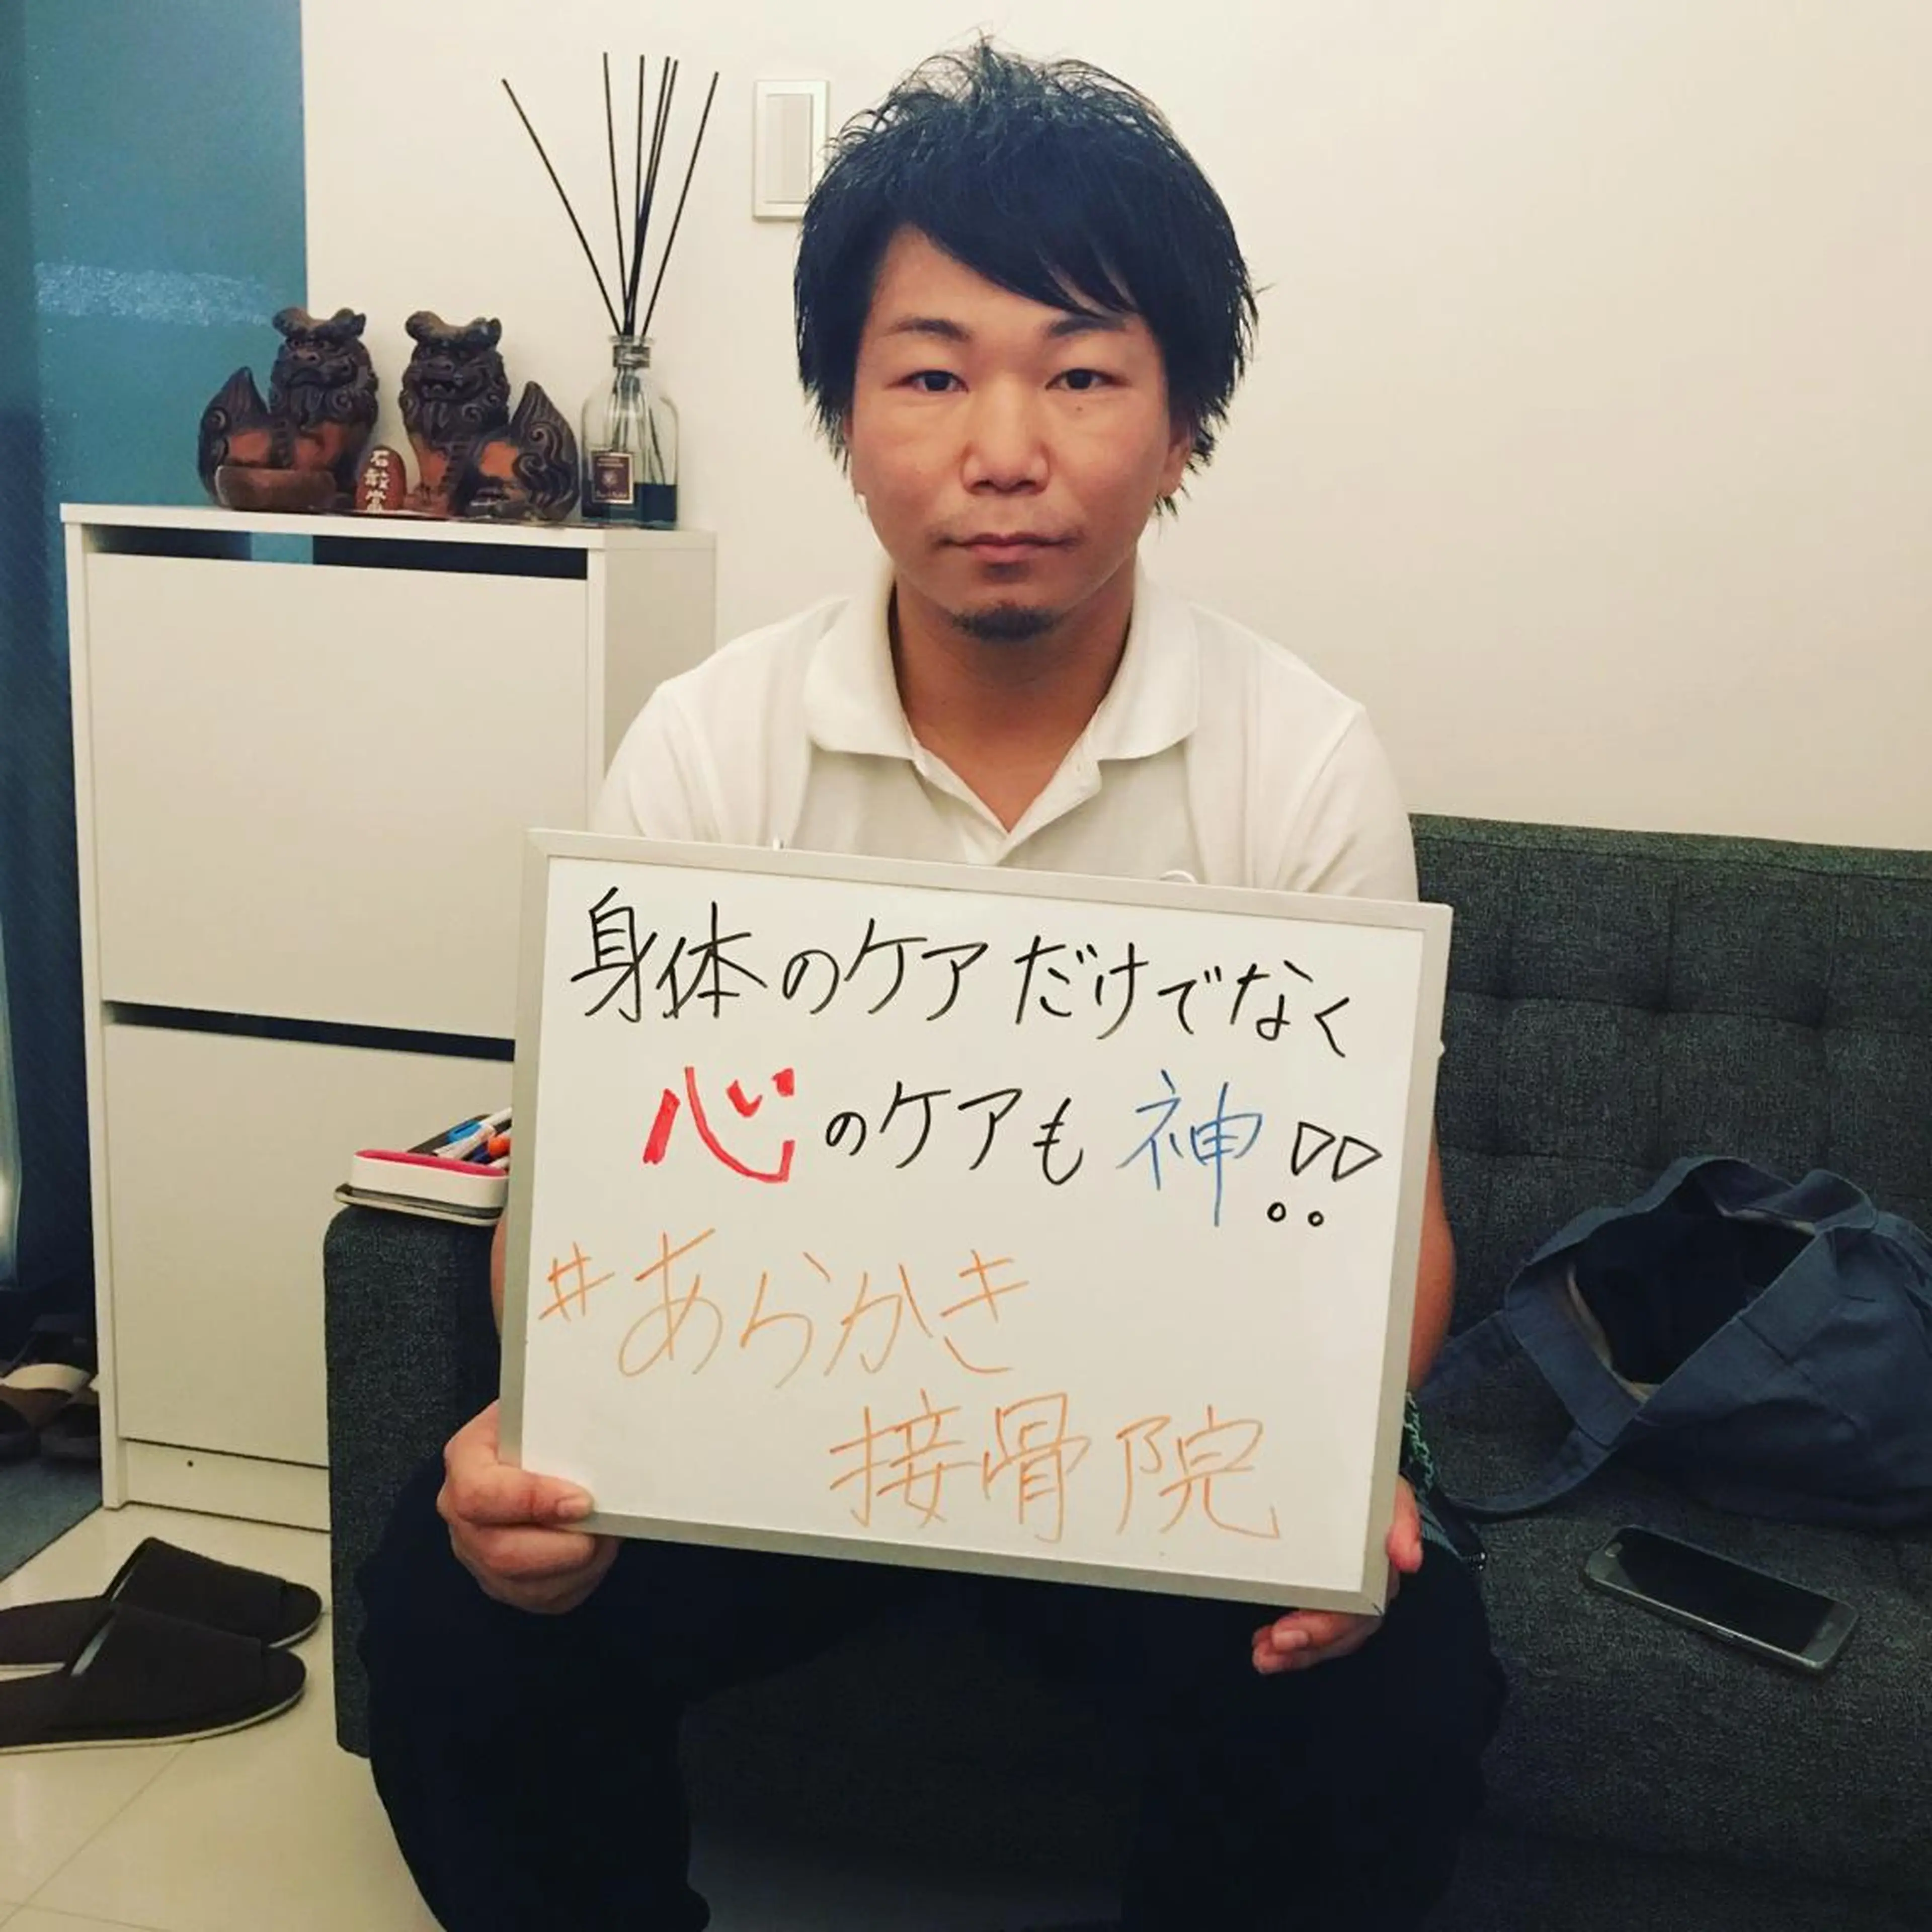 石敢當
身体のケアだけでなく
心のケアも神!!
#あらかき
接骨院